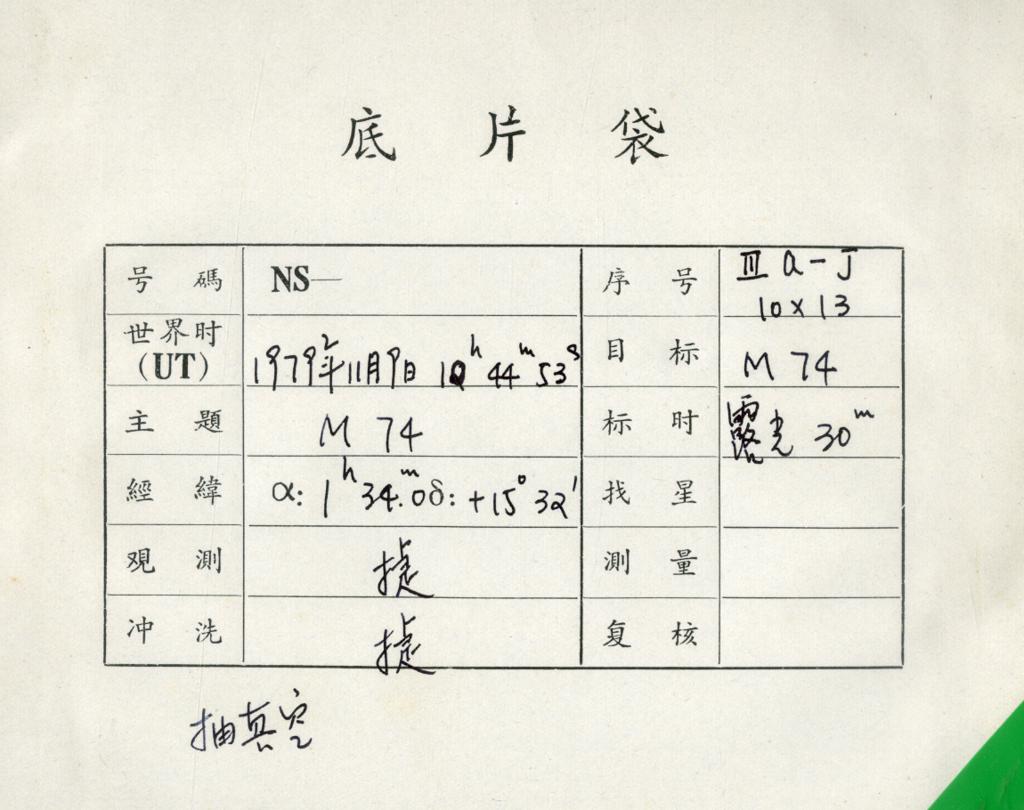 底片袋
号碼 NS— 序号 III a-J 10×13
世界时(UT) 1979年11月9日 10h 44m 53s 目标 M 74
主題 M 74 标时 露光 30m
經緯 α: 1h 34.m0 δ: +15° 32′ 找星
观測 捷 測量
冲洗 捷 复核
抽真空